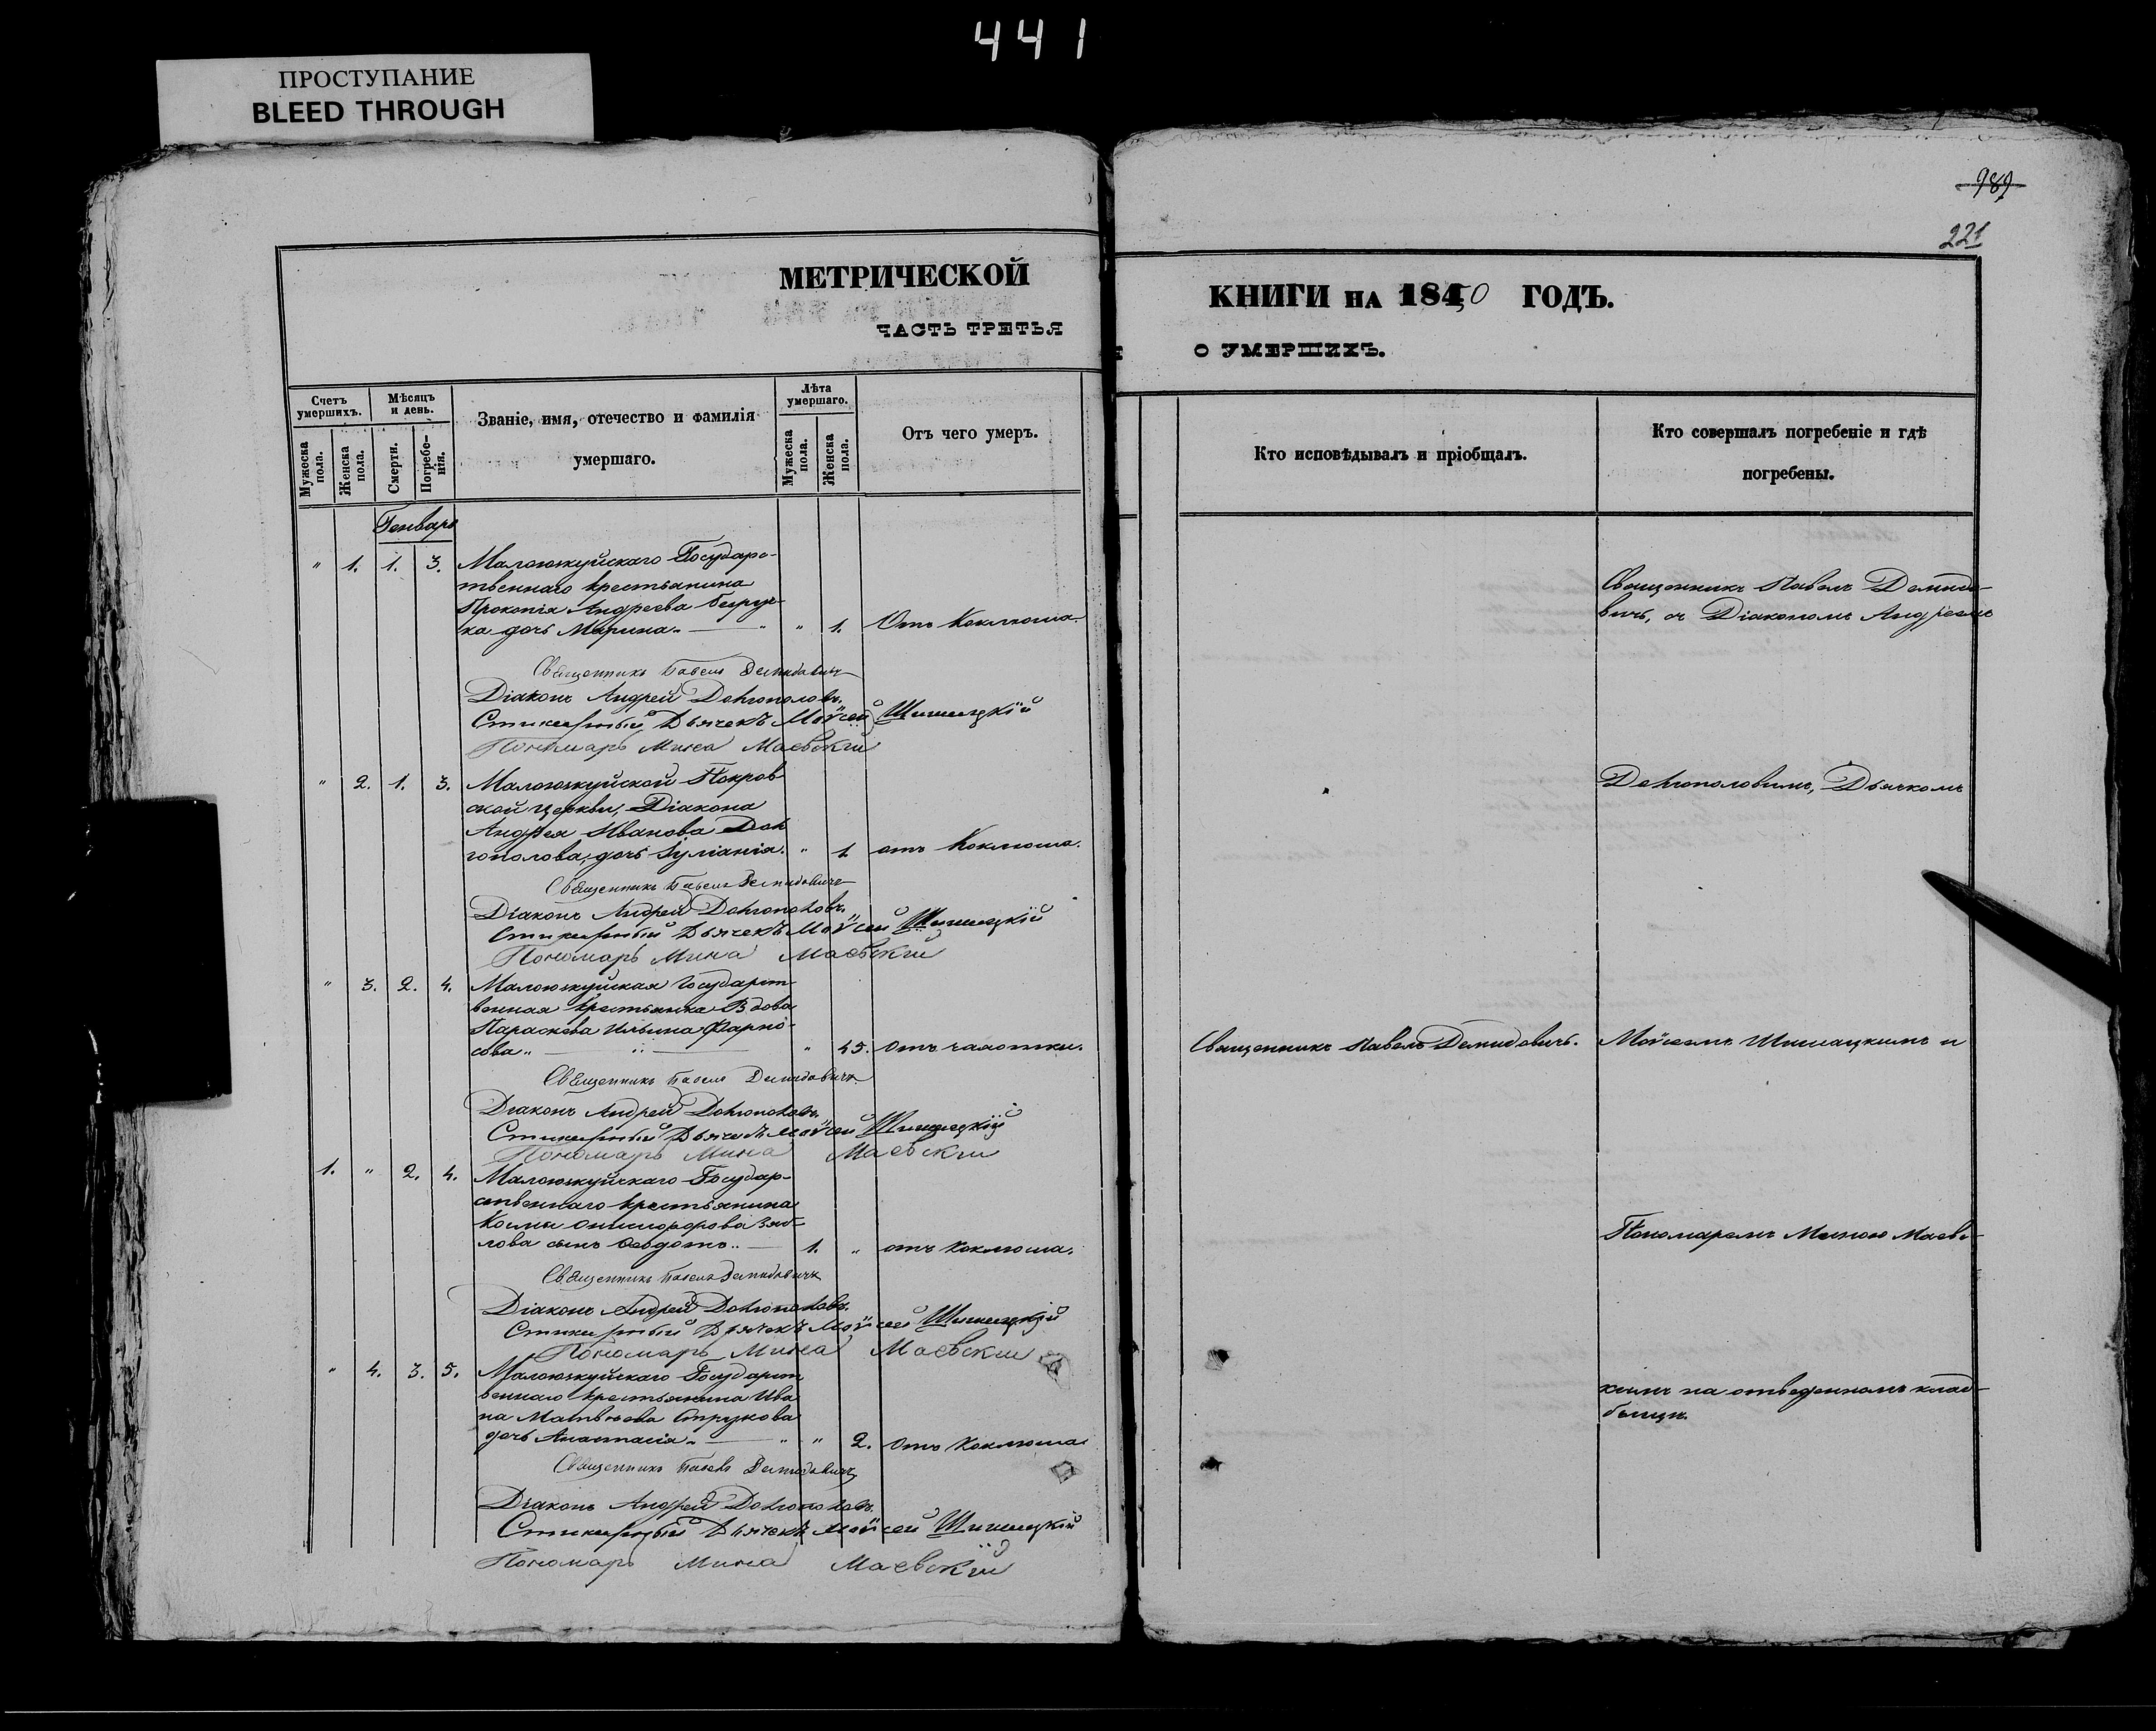 441
ПРОСТУПАНИЕ
BLEED THROUGH
989
221
МЕТРИЧЕСКОЙ
ЧАСТЬ ТРЕТЬЯ
КНИГИ НА 1850 ГОДЪ.
О УМЕРШИХЪ.
Счетъ умершихъ.
Мужеска пола.
Женска пола.
Мѣсяцъ и день.
Смерти.
Погребе-
нія.
Званіе, имя, отечество и фамилія
умершаго.
Лѣта умершаго.
Мужеска пола.
Женска пола.
Отъ чего умеръ.
Кто исповѣдывалъ и пріобщалъ.
Кто совершалъ погребеніе и гдѣ
погребены.
Генварь
" 1. 1. 3. Малоюжуйскаго Государс-
твеннаго крестьянина
Прокопія Андреева
ка дочь Марина. " " 1. Отъ Коклюша.
Священникъ Павелъ Демидовичь
Діаконъ Андрей Долгополовъ.
Стихарный Дьячекъ Моѵсей Шишацкій
Пономарь Мина Маевскій
Священникъ Павелъ Демидо-
вичь, съ Діакономъ Андреемъ
" 2. 1. 3. Малоюжуйской Покров
ской церкви, Діакона
Андрея Иванова Дол
гополова, дочь Іуліанія. " 1 отъ Коклюша.
Священникъ Павелъ Демидовичь
Діаконъ Андрей Долгополовъ.
Стихарный Дьячекъ Моѵсей Шишацкій
Пономарь Мина Маевскій
Долгополовымъ, Дьячкомъ
" 3. 2. 4. Малоюжуйская Государст
венная крестьянка Вдова
Параскева Ильина Фарно-
сова " " 45. отъ чахотки.
Священникъ Павелъ Демидовичь
Діаконъ Андрей Долгополовъ.
Стихарный Дьячекъ Моѵсей Шишацкій
Пономарь Мина Маевскій
Священникъ Павелъ Демидовичь. Моѵсеемъ Шишацкимъ и
1. " 2. 4. Малоюжуйскаго Государ-
ственнаго крестьянина
Космы Онисифорова Зяб-
лова сынъ Ѳеодотъ.. 1. " отъ коклюша.
Священникъ Павелъ Демидовичь
Діаконъ Андрей Долгополовъ.
Стихарный Дьячекъ Моѵсей Шишацкій
Пономарь Мина Маевскій
Пономаремъ Миною Маевс-
" 4. 3. 5. Малоюжуйскаго Государст
веннаго крестьянина Ива
на Матвѣева Струкова
дочь Анастасія. " " 2. отъ коклюша
Священникъ Павелъ Демидовичь
Діаконъ Андрей Долгополовъ.
Стихарный Дьячекъ Моѵсей Шишацкій
Пономарь Мина Маевскій
кимъ на отведенномъ клад-
бищи.